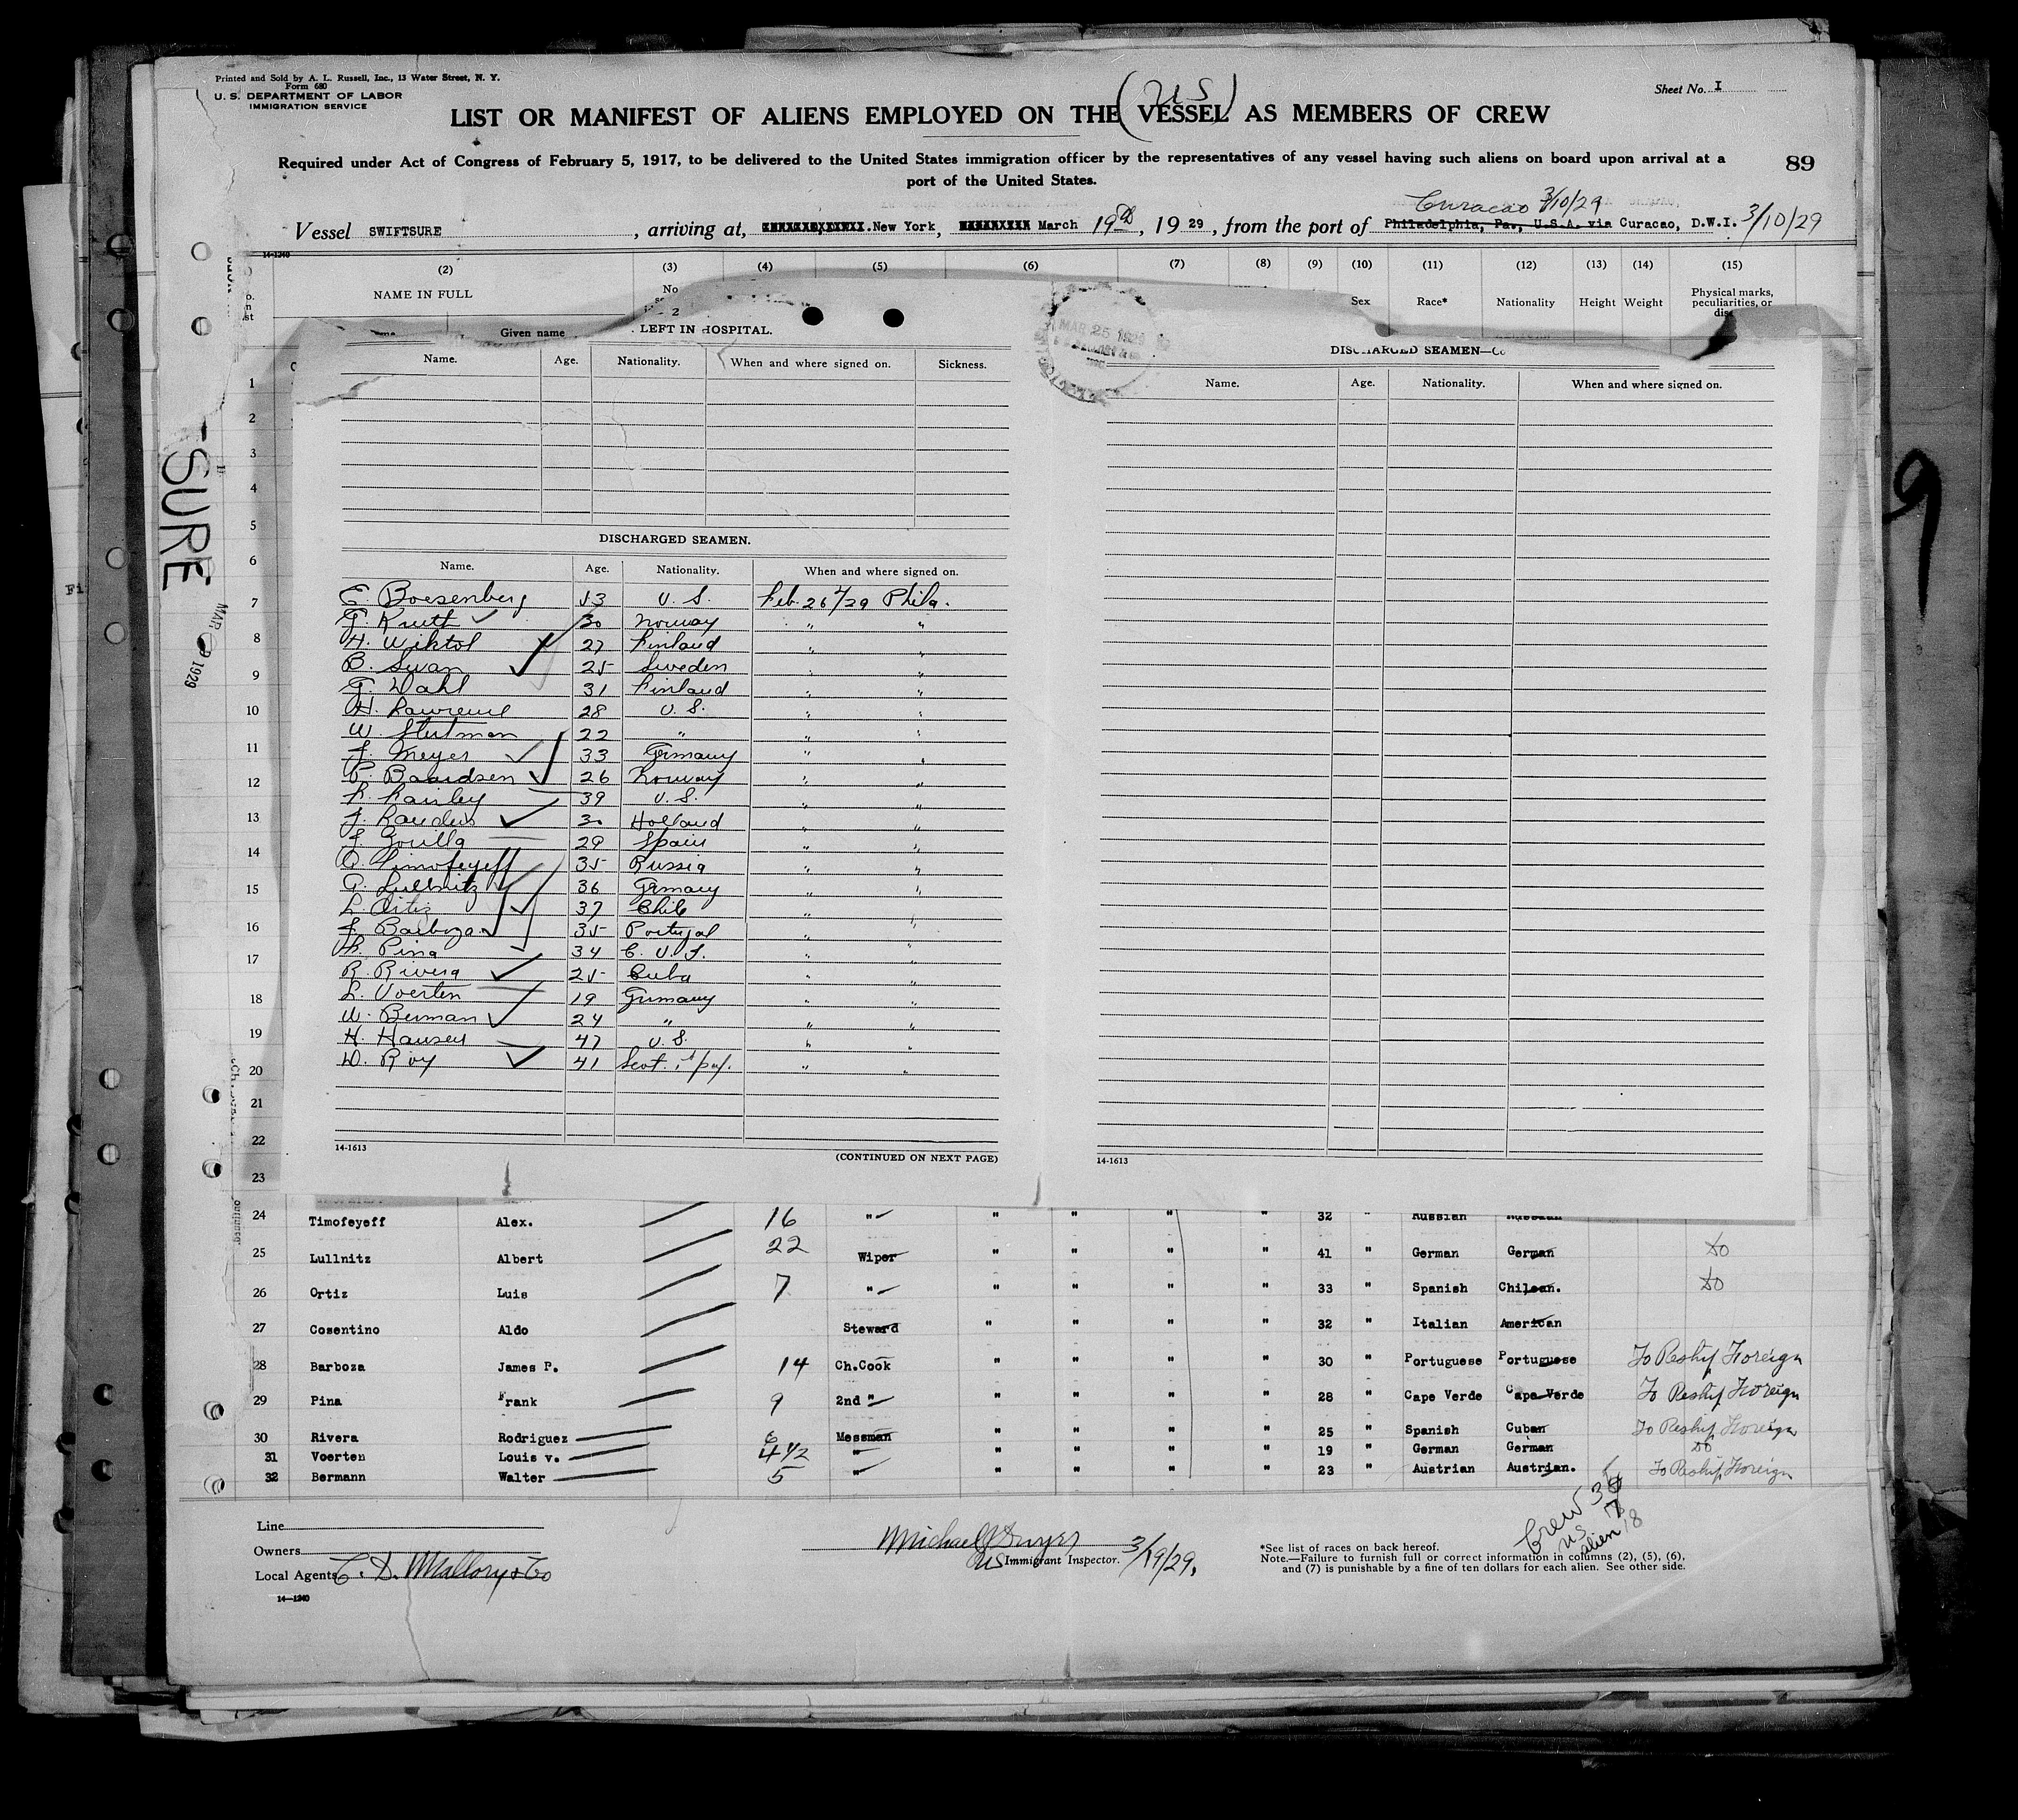 Printed and Sold by A. L. Russell, Inc., 13 Water Street, N. Y.
Form 680
U. S. DEPARTMENT OF LABOR
IMMIGRATION SERVICE
Sheet No. I
(US)
LIST OR MANIFEST OF ALIENS EMPLOYED ON THE VESSEL AS MEMBERS OF CREW
Required under Act of Congress of February 5, 1917, to be delivered to the United States immigration officer by the representatives of any vessel having such aliens on board upon arrival at a
port of the United States.
89
Curacao 3/10/29
Vessel SWIFTSURE, arriving at, New York, March 19th, 1929, from the port of Philadelphia, Pa., U.S.A. via Curacao, D.W.I. 3/10/29
14-1240
(2) (3) (4) (5) (6) (7) (8) (9) (10) (11) (12) (13) (14) (15)
NAME IN FULL No Sex Race* Nationality Height Weight Physical marks, peculiarities, or
Given name
LEFT IN HOSPITAL.
Name. Age. Nationality. When and where signed on. Sickness.
MAR 25 1929
DISCHARGED SEAMEN—Co
Name. Age. Nationality. When and where signed on.
SURE
MAR 1929
9
1
2
3
4
5
6
7
8
9
10
11
12
13
14
15
16
17
18
19
20
21
22
23
DISCHARGED SEAMEN.
Name. Age. Nationality. When and where signed on.
E. Boesenberg 53 U. S. Feb. 26/29 Phila.
T. Knutt 30 Norway " "
H. Wiktol 27 Finland " "
B. Swan 25 Sweden " "
G. Wahl 31 Finland " "
H. Lawrence 28 U. S. " "
W. Stutman 22 " " "
J. Meyer 33 Germany " "
P. Baardsen 26 Norway " "
L. Lainley 39 U. S. " "
J. Randers 30 Holland " "
J. Zorilla 29 Spain " "
A. Timofeyeff 35 Russia " "
A. Lullnitz 36 Germany " "
L. Ortiz 37 Chile " "
J. Barboza 35 Portugal " "
F. Pina 34 C. V. I. " "
R. Rivera 25 Cuba " "
L. Voerten 19 Germany " "
W. Berman 24 " " "
H. Hansen 47 U. S. " "
D. Roy 41 Scot. 1st pap. " "
14-1613
(CONTINUED ON NEXT PAGE)
14-1613
24 Timofeyeff Alex. 16 " " " " " 32 " Russian Russian
25 Lullnitz Albert 22 Wiper " " " " 41 " German German do
26 Ortiz Luis 7 " " " " " 33 " Spanish Chilean. do
27 Cosentino Aldo Steward " " " " 32 " Italian American
28 Barboza James P. 14 Ch.Cook " " " " 30 " Portuguese Portuguese To Reship Foreign
29 Pina Frank 9 2nd " " " " " 28 " Cape Verde Cape Verde To Reship Foreign
30 Rivera Rodriguez 6 Messman " " " " 25 " Spanish Cuban To Reship Foreign
31 Voerten Louis v. 4 1/2 " " " " " 19 " German German do
32 Bermann Walter 5 " " " " " 23 " Austrian Austrian. To Reship Foreign
Line
Owners
Local Agents C. D. Mallory & Co
14—1240
US Immigrant Inspector. 3/19/29.
Crew
US
alien 18
*See list of races on back hereof.
Note.—Failure to furnish full or correct information in columns (2), (5), (6),
and (7) is punishable by a fine of ten dollars for each alien. See other side.